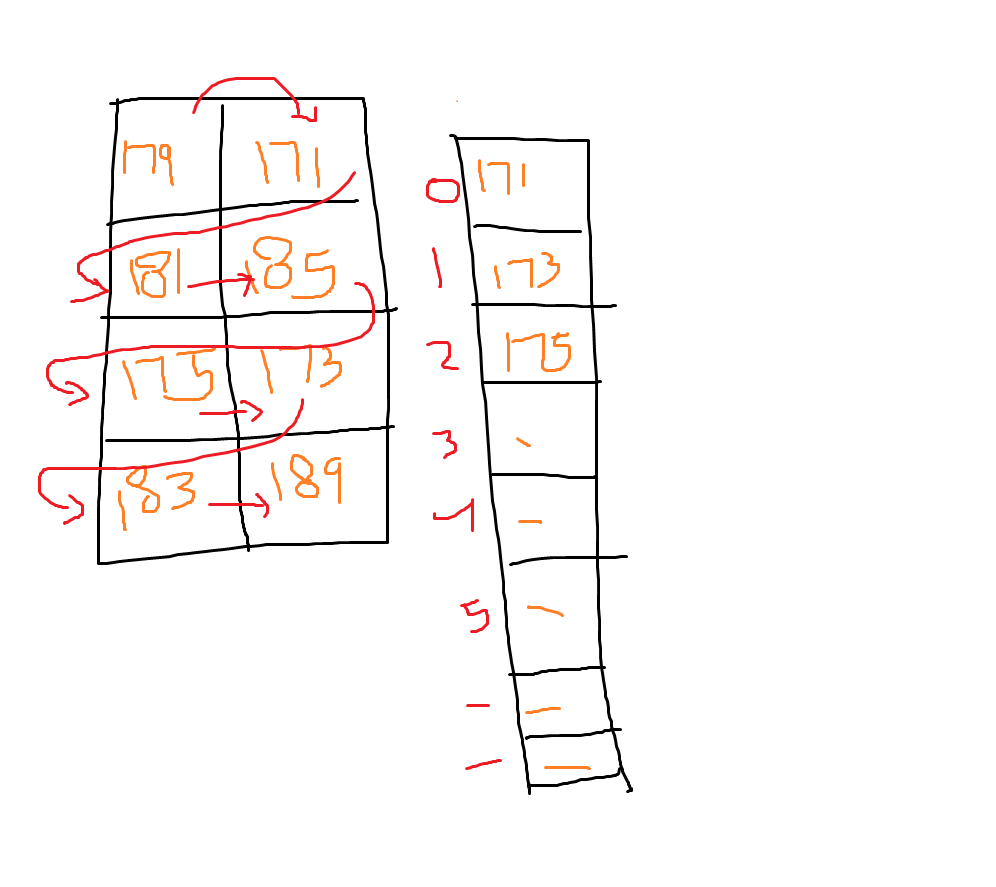 179 171
181 185
175 173
183 189
0 171
1 173
2 175
3 -
4 -
5 -
- -
- -